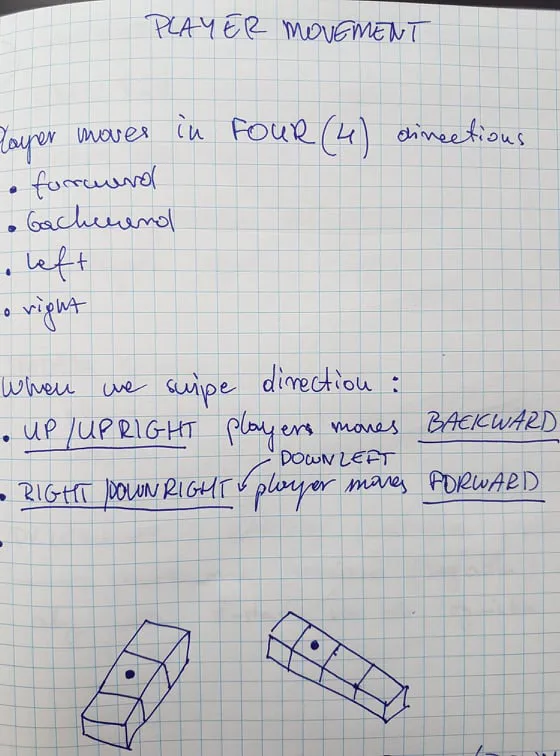 PLAYER MOVEMENT
Player moves in FOUR (4) directions
• forward
• backward
• left
• right
When we swipe direction :
• UP / UPRIGHT players moves BACKWARD
DOWNLEFT
• RIGHT / DOWNRIGHT player moves FORWARD